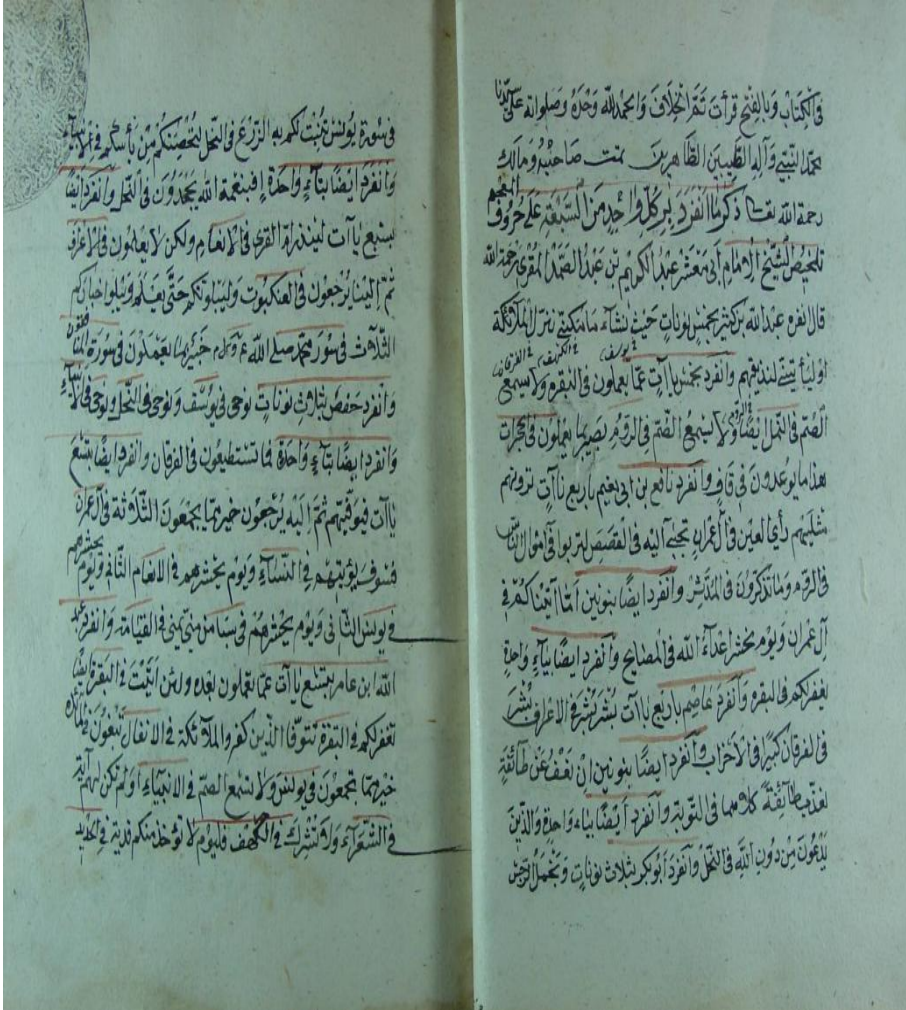 في الكتاب وبالفتح قرأت نقر الخلاف والحمد لله وحده وصلواته على سيدنا
محمد النبي وآله الطيبين الطاهرين تمت صاحبه ومالك
رحمة الله تعالى ذكر ما انفرد به كل واحد من السبعة على حروف المعجم
تلخيص الشيخ الإمام أبي معشر عبد الكريم بن عبد الصمد المقرئ رحمة الله
قال انفرد عبد الله بن كثير بخمس نونات حيث نشاء ما مكنني ننزل الملائكة
أو ليأتينني لنذيقهم وانفرد بخمس ياآت عما يعملون في البقرة ولا يسمع
الصم في النمل أيضا ولا يسمع الصم في الروم بصير بما يعملون في الحجرات
هذا ما يوعدون في قاف وانفرد نافع بن أبي نعيم بأربع تاآت ترونهم
مثليهم رأي العين في آل عمران تجبى إليه في القصص لتربوا في أموال الناس
في الروم وما تذكرون في المدثر وانفرد أيضا بنونين لما آتيناكم في
آل عمران ويوم نحشر أعداء الله في المصابيح وانفرد أيضا بياء واحدة
يغفر لكم في البقرة وانفرد عاصم بأربع باآت بشر بشر في الاعراف بشرا
في الفرقان كبيرا في الأحزاب وانفرد أيضا بنونين إن نعف عن طائفة
نعذب طائفة كلاهما في التوبة وانفرد أيضا بياء واحدة والذين
يدعون من دون الله في النحل وانفرد أبو بكر بثلاث نونات ونجعل الرجس
في سورة يونس ننبت لكم به الزرع في النحل لنحصنكم من بأسكم في الانبياء
وانفرد أيضا بتاء واحدة أفبنعمة الله تجحدون في النحل وانفرد أيضا
بسبع ياآت لينذر أم القرى في الانعام ولكن لا يعلمون في الاعراف
ثم إلينا يرجعون في العنكبوت وليبلونكم حتى يعلم ويبلو أخباركم
الثلاث في سورة محمد صلى الله عليه وسلم خبير بما يعملون في سورة المنافقون
وانفرد حفص بثلاث نونات نوحي في يوسف ونوحي في النحل ونوحي في الأنبياء
وانفرد أيضا بتاء واحدة فما تستطيعون في الفرقان وانفرد أيضا بتسع
ياآت فيوفيهم ثم إليه يرجعون خير مما يجمعون الثلاثة في آل عمران
فسوف يؤتيهم في النساء ويوم يحشرهم في الانعام الثاني ويوم يحشرهم
في يونس الثاني ويوم يحشرهم في سبأ من مني يمنى في القيامة وانفرد عبد
الله ابن عامر بتسع تاآت عما تعملون بعده ولئن أتيت في البقرة أيضا
تغفر لكم في البقرة تتوفا الذين كفروا الملائكة في الانفال تبغون في المائدة
خير مما تجمعون في يونس ولا تسمع الصم في الانبياء أو لم تكن لهم آية
في الشعراء ولا تشرك في الكهف فاليوم لا تؤخذ منكم فدية في الحديد